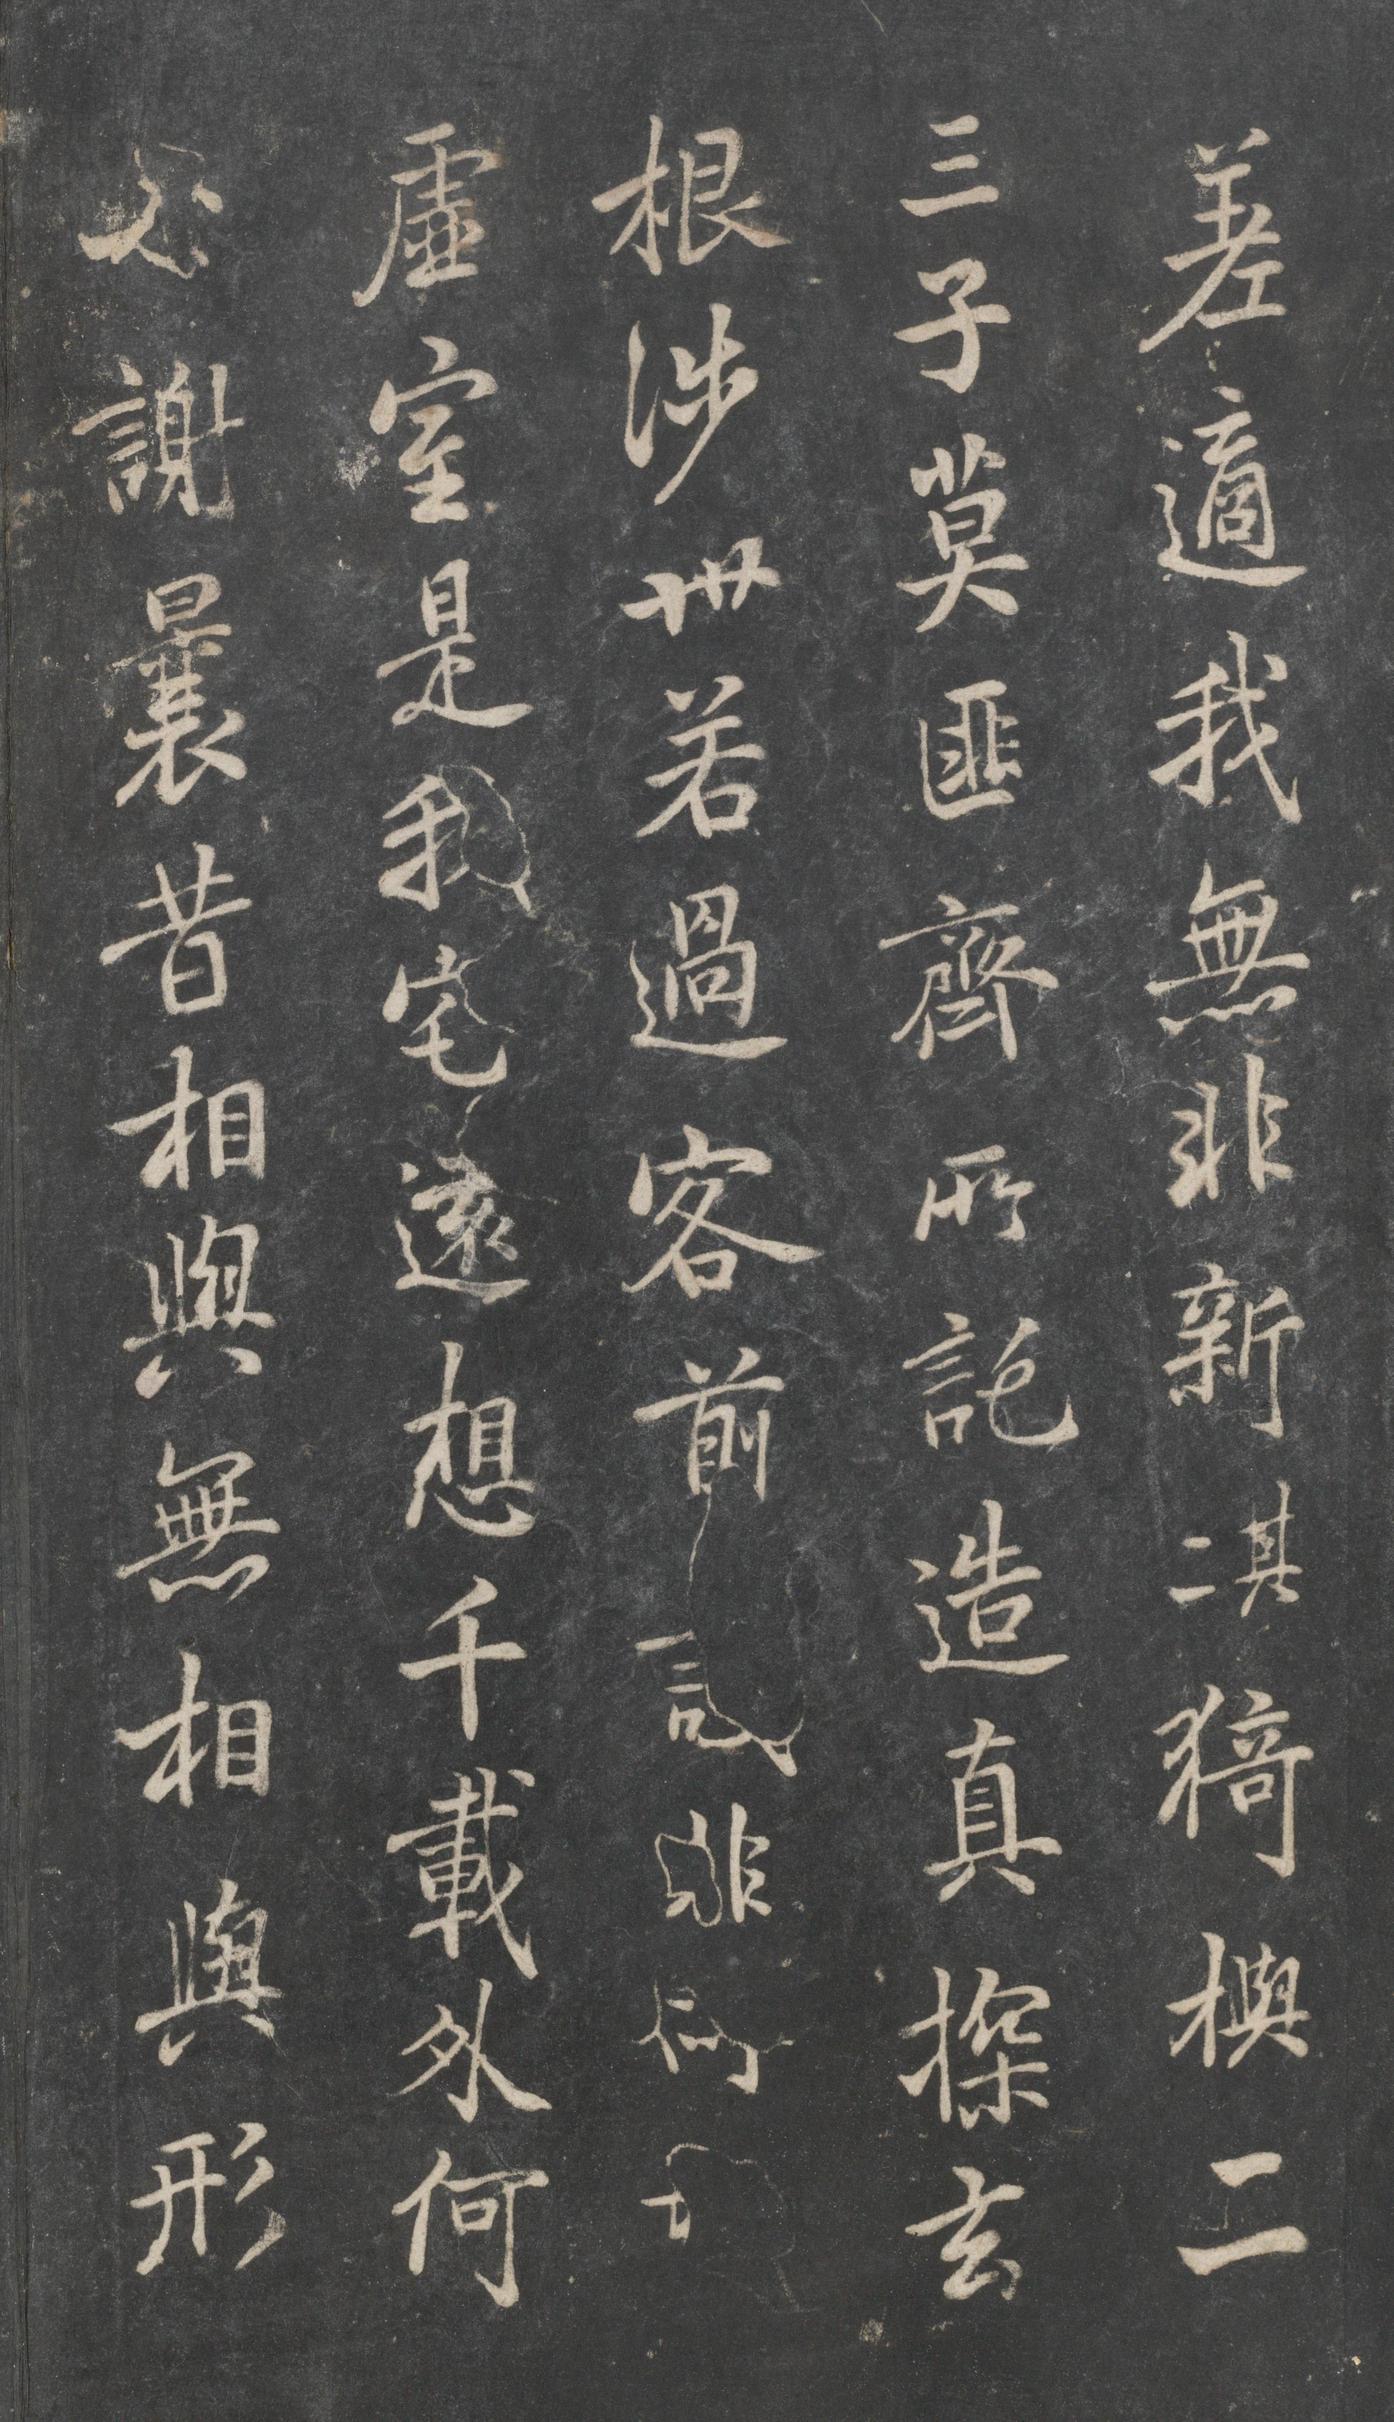 差適我無非新其二猗與二
三子莫匪齊所託造真探玄
根涉世若過客前識非
虛室是我宅遠想千載外何
必謝曩昔相與無相與形